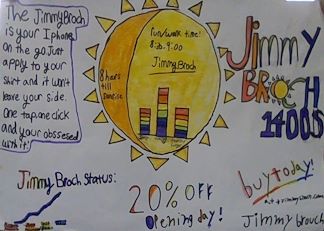 The JimmyBroch
is your Iphone
on the go Just
apply to your
shirt and it won't
leave your side.
one tap, one click
and your obssesed
with it!
run/walk time:
8:30-9:00
JimmyBroch
8 hors
till
sunrise
Jimmy
BROCH
1400$
Jimmy Broch Status:
20% OFF
opening day!
buy today!
Jimmy brouch